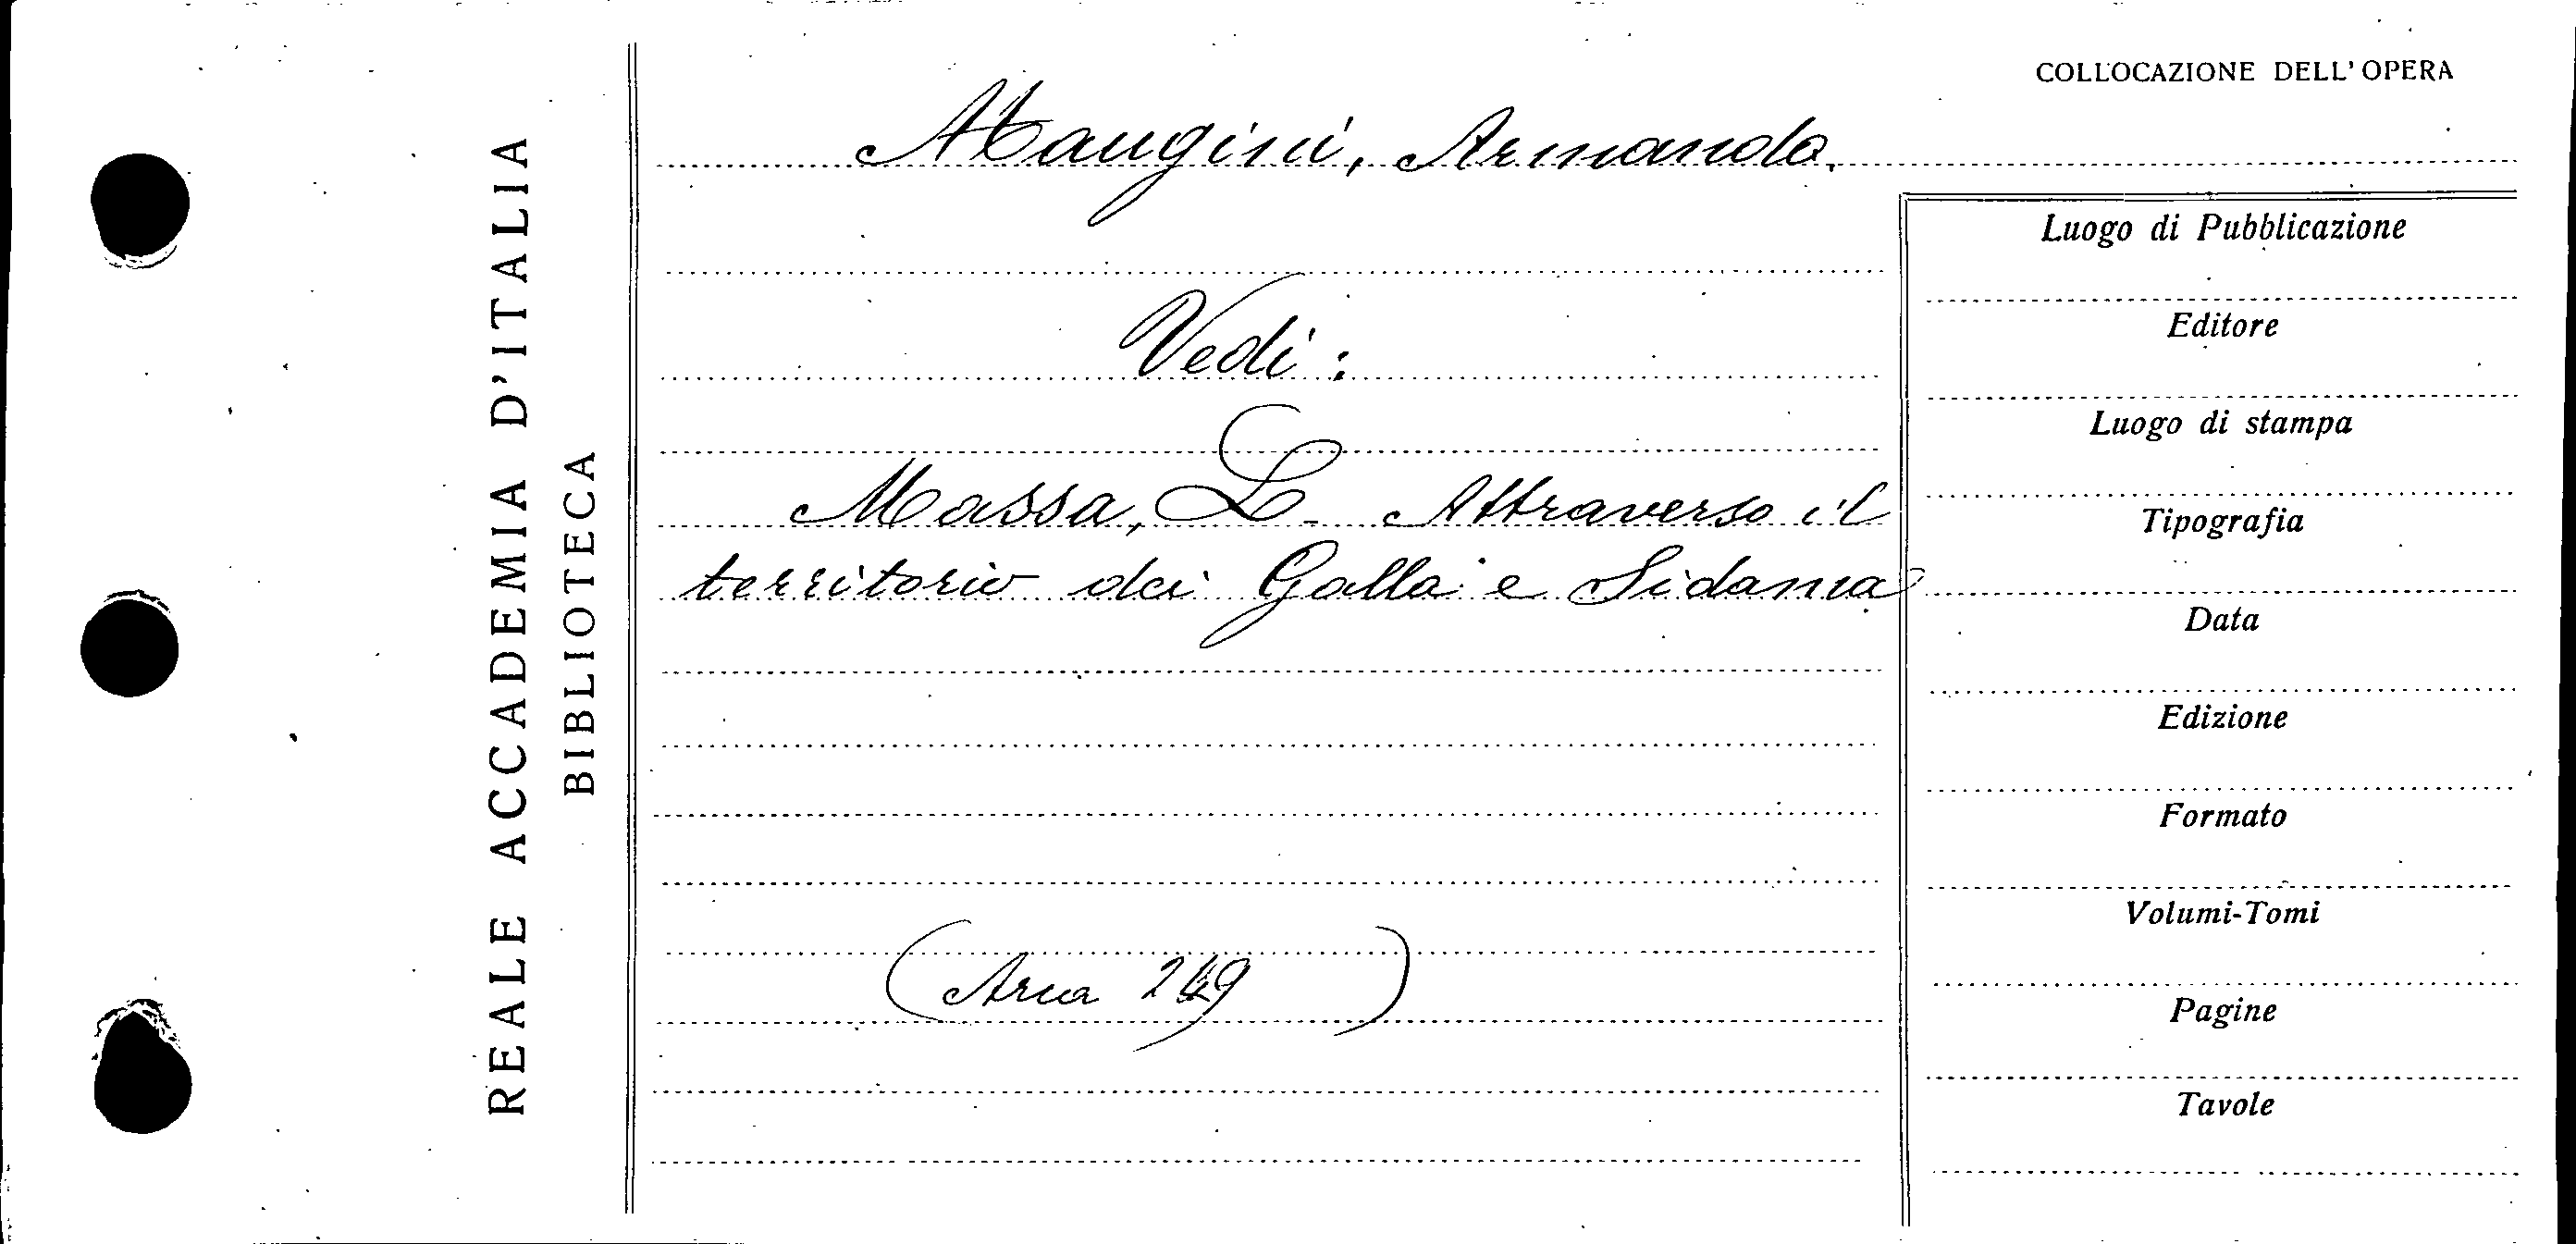 REALE ACCADEMIA D'ITALIA
BIBLIOTECA
COLLOCAZIONE DELL'OPERA
Maugini, Armando.
Vedi:
Massa, L. Attraverso il
territorio dei Galla e Sidama
(Arca 249)
Luogo di Pubblicazione
Editore
Luogo di stampa
Tipografia
Data
Edizione
Formato
Volumi-Tomi
Pagine
Tavole